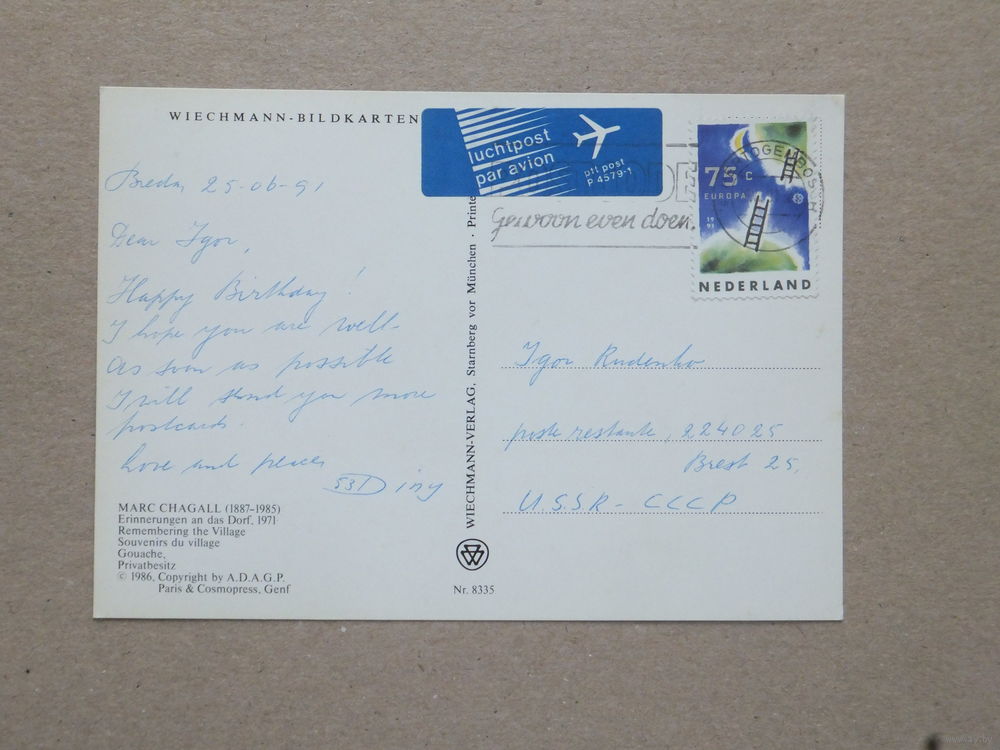 WIECHMANN-BILDKARTEN
luchtpost
par avion
ptt post
P 4579-1
Gewoon even doen.
75 C
EUROPA
1991
NEDERLAND
Breda, 25-06-91
Dear Igor,
Happy Birthday!
I hope you are well-
As soon as possible
I will send you more
postcards.
Love and peace,
Diny
MARC CHAGALL (1887-1985)
Erinnerungen an das Dorf, 1971
Remembering the Village
Souvenirs du village
Gouache,
Privatbesitz
© 1986, Copyright by A.D.A.G.P.
Paris & Cosmopress, Genf
WIECHMANN-VERLAG, Starnberg vor München · Printe
Nr. 8335
Igor Rudenko
poste restante, 224025
Brest 25,
U.S.S.R - CCCP